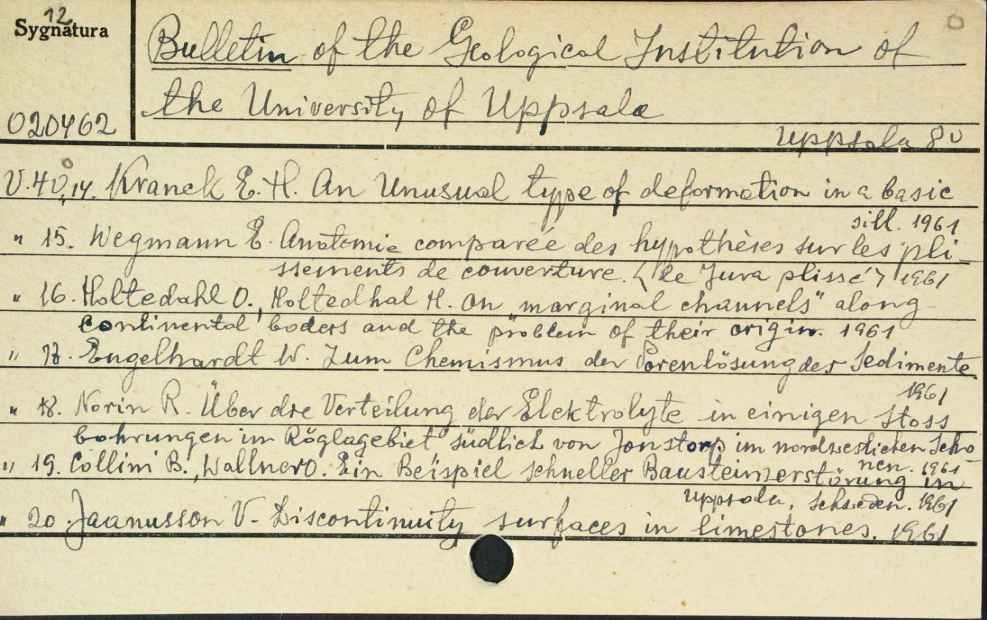 12
Sygnatura
020462
Bulletin of the Geological Institution of
the University of Uppsala
Uppsala 80
V.40,14. Kranck E.H. An Unusual type of deformation in a basic
sill. 1961
" 15. Wegmann E. Anatomie comparée des hypothèses sur les pli-
ssements de couverture. (le Jura plissé) 1961
" 16. Holtedahl O., Holtedhal H. On "marginal channels" along
continental boders and the problem of their origin. 1961
" 17. Engelhardt W. Zum Chemismus der Porenlösung der Sedimente
1961
" 18. Norin R. Über die Verteilung der Elektrolyte in einigen Stoss
bohrungen im Röglagebiet südlich von Jonstorp im nordwestlichen Scho
nen. 1961
" 19. Collini B., Wallner O. Ein Beispiel schneller Bausteinzerstörung in
Uppsala, Schweden. 1961
" 20. Jaanusson V. Discontinuity surfaces in limestones. 1961